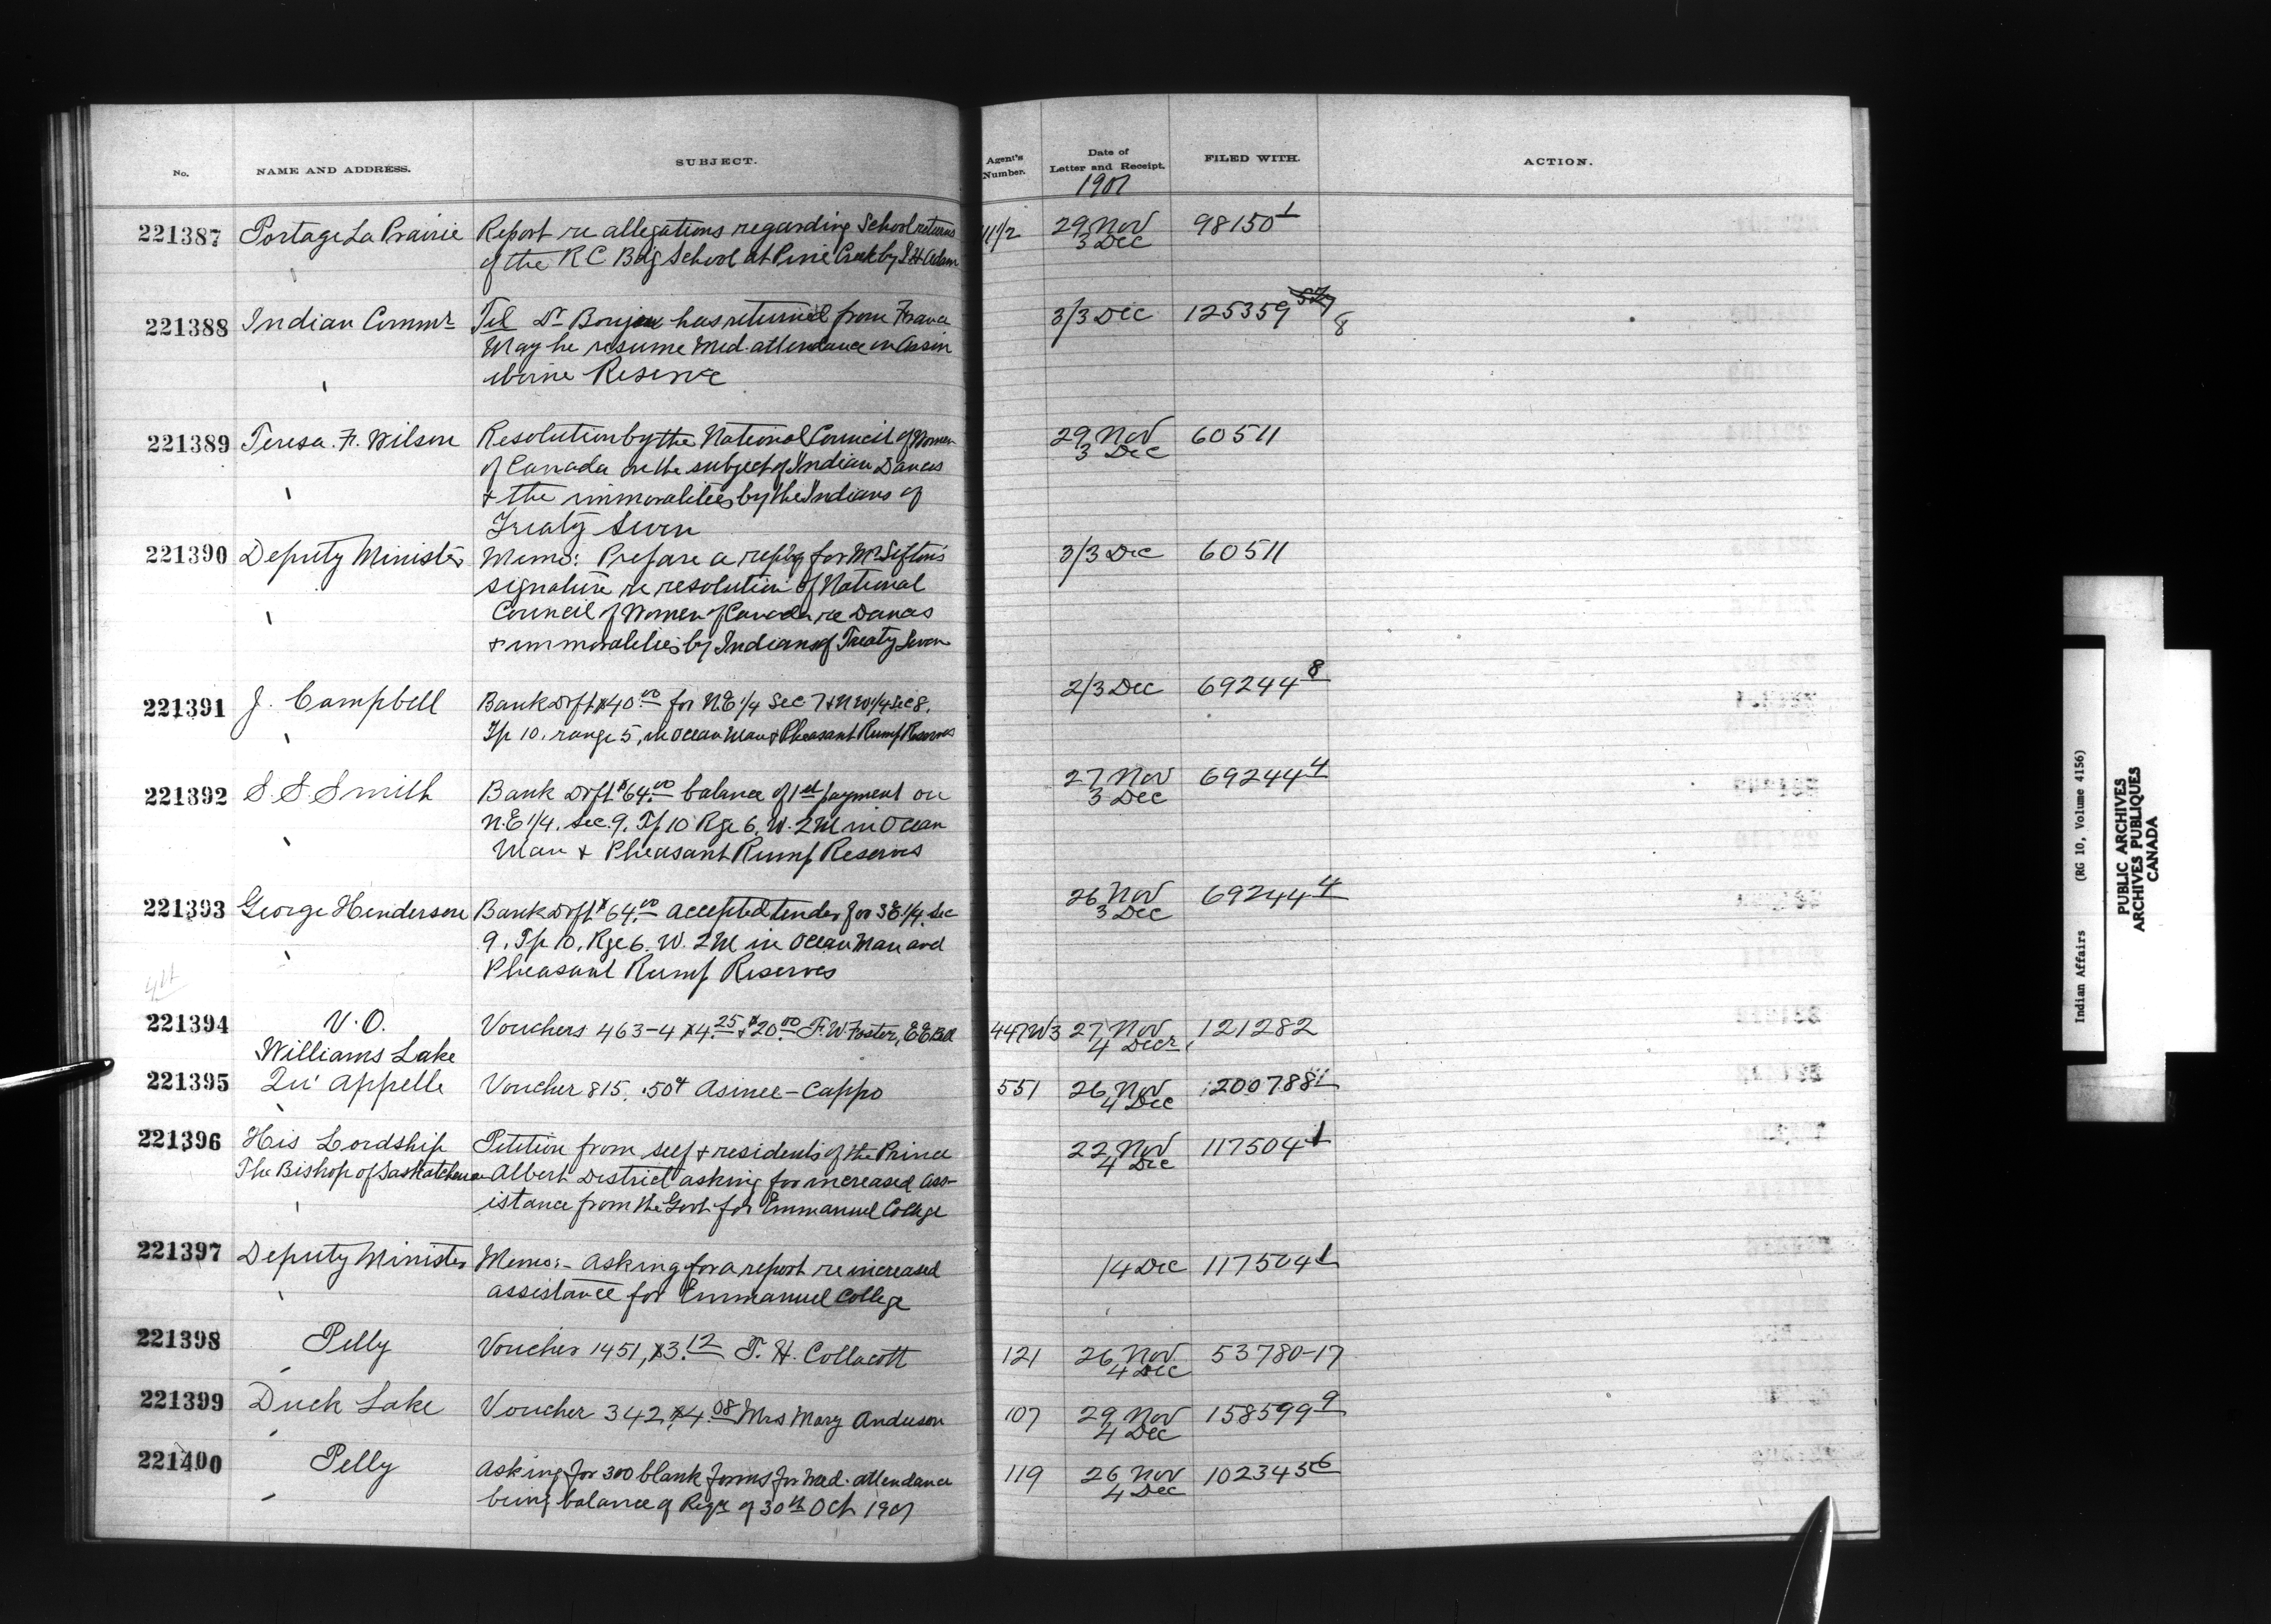 No. NAME AND ADDRESS. SUBJECT. Agent's Number. Date of Letter and Receipt. FILED WITH. ACTION.
1901
221387 Portage La Prairie Report re allegations regarding School returns 29 Nov 98150 1
of the R C Bdg School at Pine Creek by J H Adam 3 Dec
221388 Indian Commr Tel Dr Boujou has returned from France 3/3 Dec 125359 8
May he resume Med. attendance on Assin
iboine Reserve
221389 Teresa. F. Wilson Resolution by the National Council of Women 29 Nov 60511
of Canada on the subject of Indian Dances 3 Dec
& the immoralities by the Indians of
Treaty Seven
221390 Deputy Minister Memo: Prepare a reply for Mr Sifton's 3/3 Dec 60511
signature re resolution of National
Council of Women of Canada re Dances
& immoralities by Indians of Treaty Seven
221391 J. Campbell Bank Drft $40.00 for N.E 1/4 Sec 7 & N W 1/4 Sec 8. 2/3 Dec 69244 8
Tp 10, range 5, in Ocean Man & Pheasant Rump Reserves
221392 S. S. Smith Bank Drft $64.00 balance of 1st payment on 27 Nov 69244 4
N.E 1/4. Sec. 9. Tp 10 Rge 6. W. 2 M in Ocean 3 Dec
Man & Pheasant Rump Reserves
221393 George Henderson Bank Drft $64.00 accepted tender for S E 1/4. Sec 26 Nov 69244 4
9. Tp 10. Rge 6. W. 2 M in Ocean Man and 3 Dec
Pheasant Rump Reserves
4th
221394 V. O. Vouchers 463-4 $4.25 & $20.00 F. W. Foster, E E Bell 447W3 27 Nov 121282
Williams Lake 4 Decr
221395 Qu' Appelle Voucher 815. .50¢ Asinee-Cappo 551 26 Nov 120078 81
4 Dec
221396 His Lordship Petition from self & residents of the Prince 22 Nov 117504 1
The Bishop of Saskatchewan Albert District asking for increased ass- 4 Dec
istance from the Govt for Emmanuel College
221397 Deputy Minister Memo:- Asking for a report re increased /4 Dec 117504 1
assistance for Emmanuel College
221398 Pelly Voucher 1451, $3.12 T. H. Collacott 121 26 Nov 53780-17
4 Dec
221399 Duck Lake Voucher 342, $4.08 Mrs Mary Anderson 107 29 Nov 158599 9
4 Dec
221400 Pelly Asking for 300 blank forms for Med. attendance 119 26 Nov 102345 6
being balance of Reqn of 30th Oct 1901 4 Dec
Indian Affairs (RG 10, Volume 4156)
PUBLIC ARCHIVES
ARCHIVES PUBLIQUES
CANADA